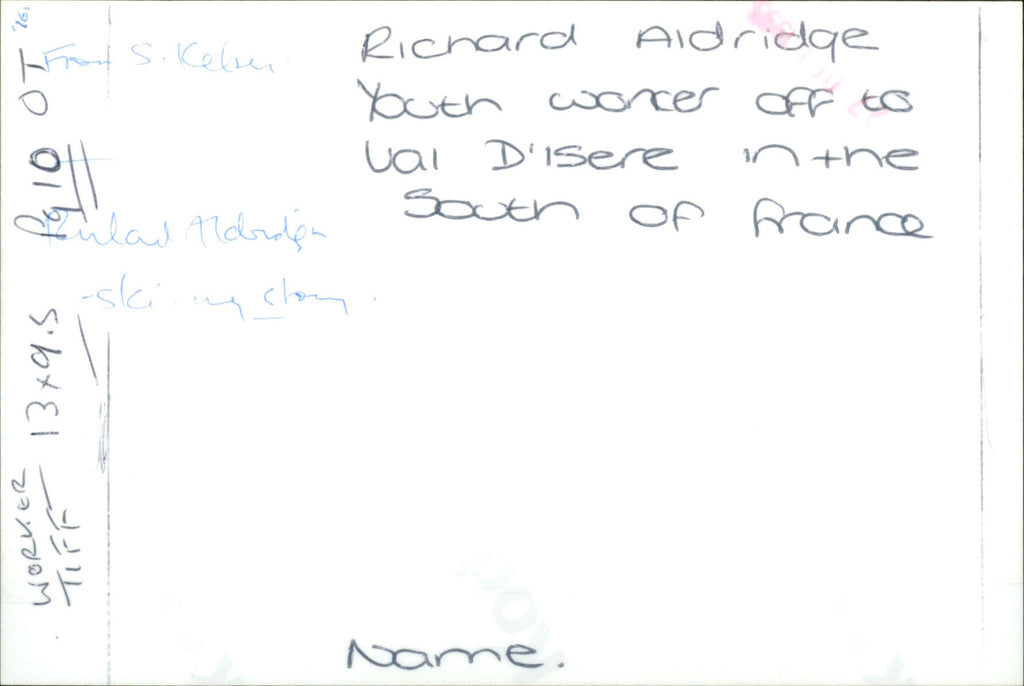 Richard Aldridge
Youth worker off to
Val D'Isere in the
South of france
Name.
From S.
Richard Aldridge
-ski ing story.
Pg 10 OT
13 x 9.5
WORKER
TIFF